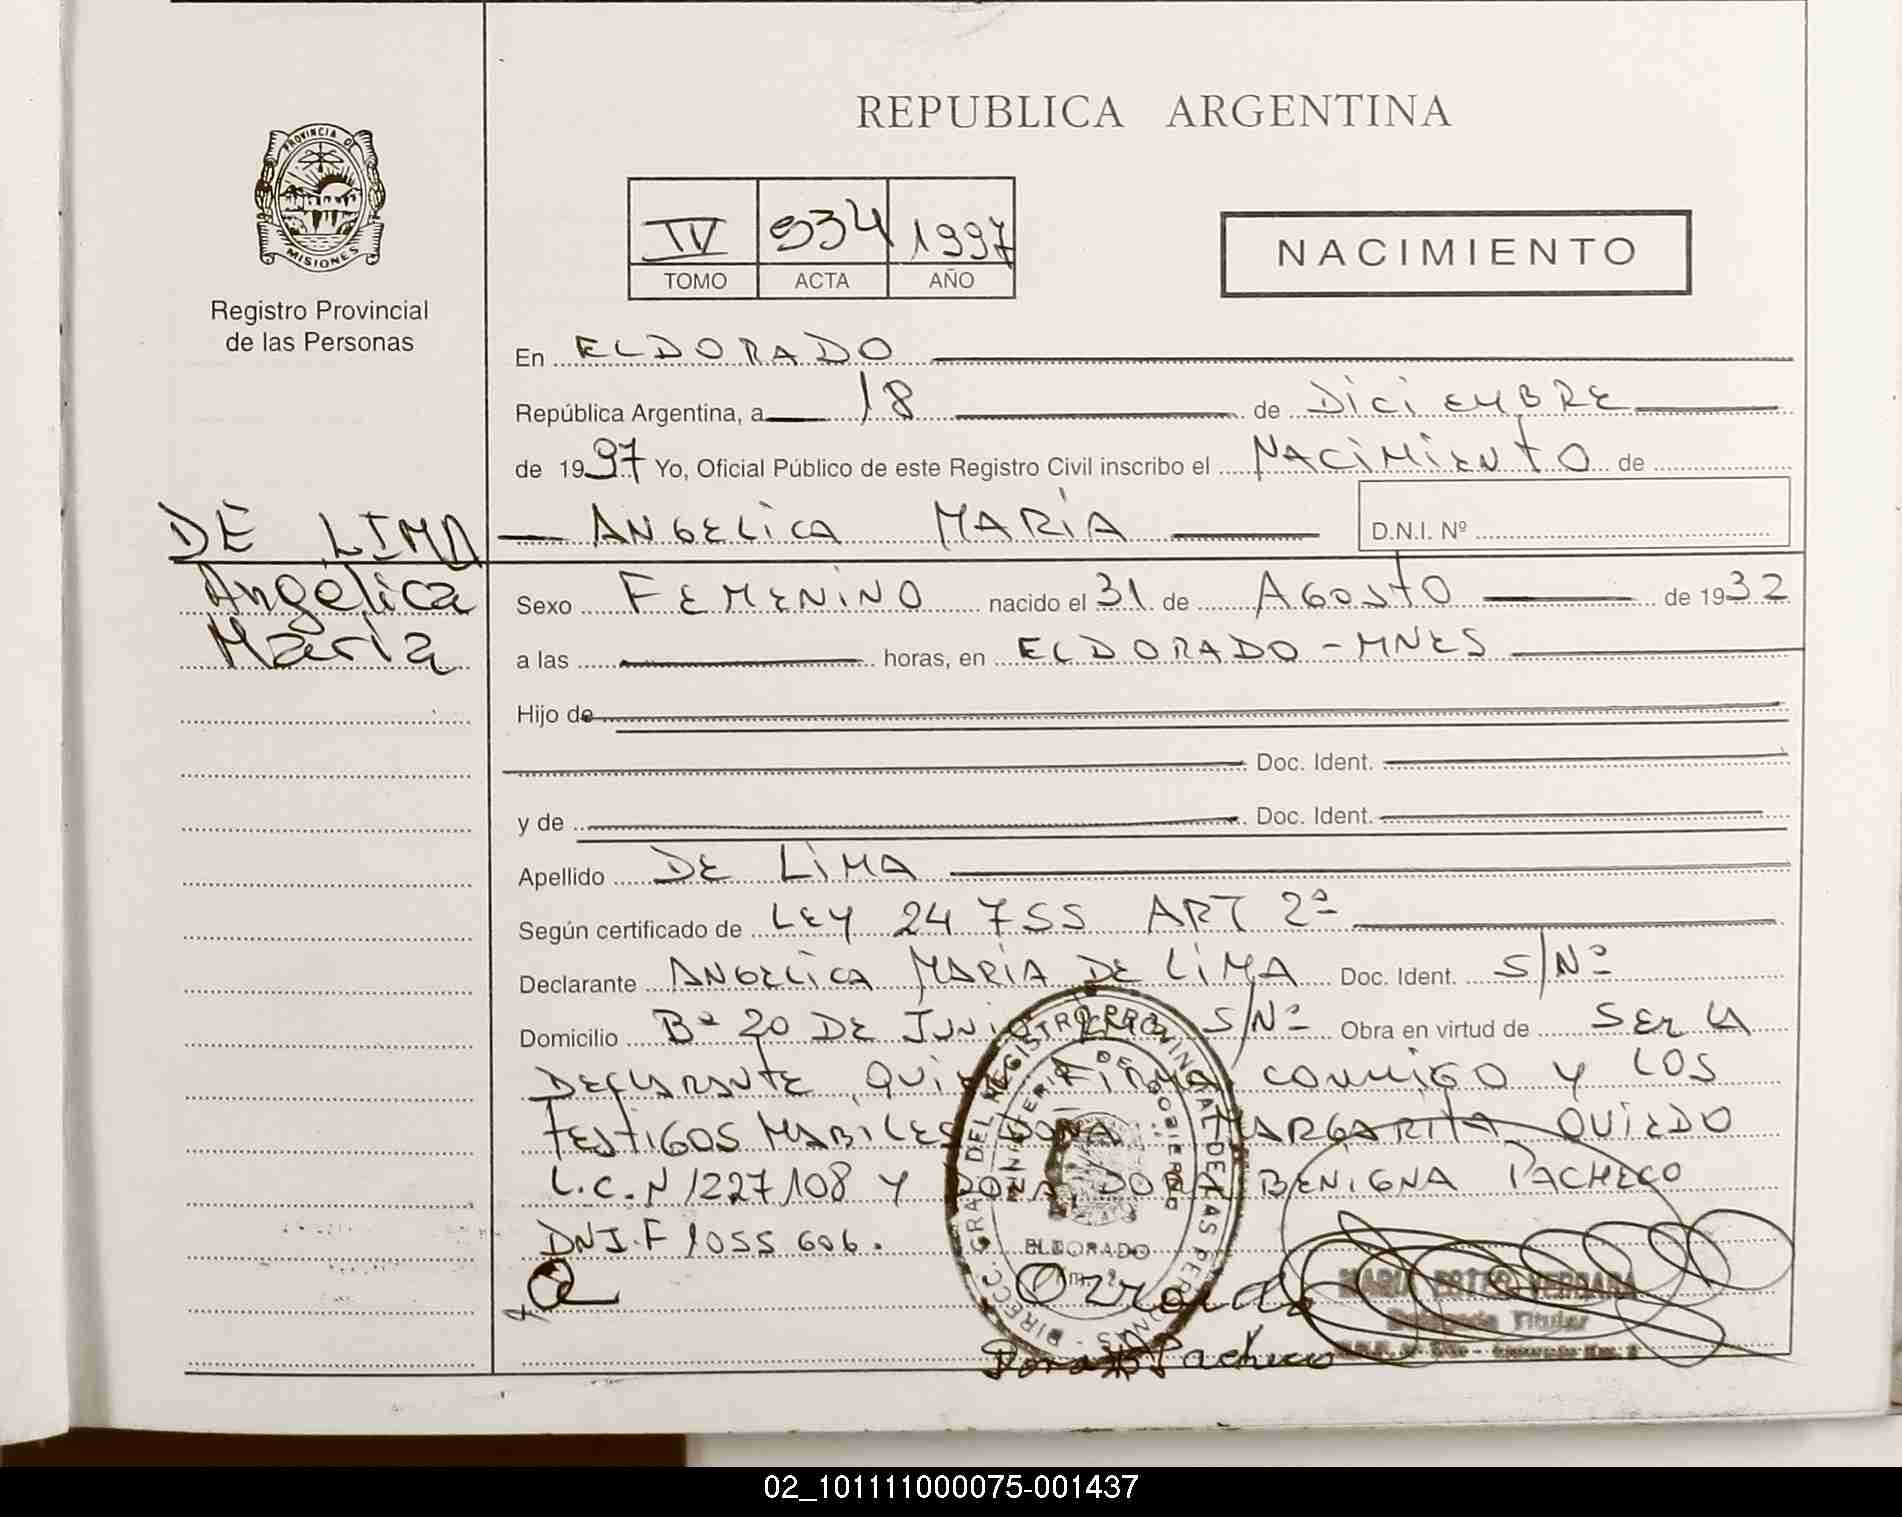 REPUBLICA ARGENTINA
PROVINCIA DE
MISIONES
Registro Provincial
de las Personas
IV 934 1997
TOMO ACTA AÑO
NACIMIENTO
En ELDORADO
República Argentina, a 18 de DiCiEMBRE
de 1997 Yo, Oficial Público de este Registro Civil inscribo el NACiMiENTO de
DE LIMA
Angélica
María
ANGELiCA MARíA D.N.I. Nº
Sexo FEMENiNO nacido el 31 de AGOSTO de 1932
a las horas, en ELDORADO - MNES
Hijo de
Doc. Ident.
y de Doc. Ident.
Apellido DE LiMA
Según certificado de LEY 24755 ART 2º
Declarante ANGELiCA MARíA DE LiMA Doc. Ident. S/Nº
Domicilio Bº 20 DE JUNiO S/Nº Obra en virtud de SER LA
DECLARANTE, QUIEN FIRMA CONMIGO Y LOS
TESTIGOS HABILES DOÑA MARGARITA OVIEDO
L.C. N 1227108 Y DOÑA DORA BENIGNA PACHECO
DNI. F 1055 606.
DIRECC. GRAL. DEL REGISTRO PROVINCIAL DE LAS PERSONAS
MINISTERIO DE GOBIERNO
ELDORADO
Dora B Pacheco
MARIA ESTER VERGARA
Delegada Titular
02_101111000075-001437